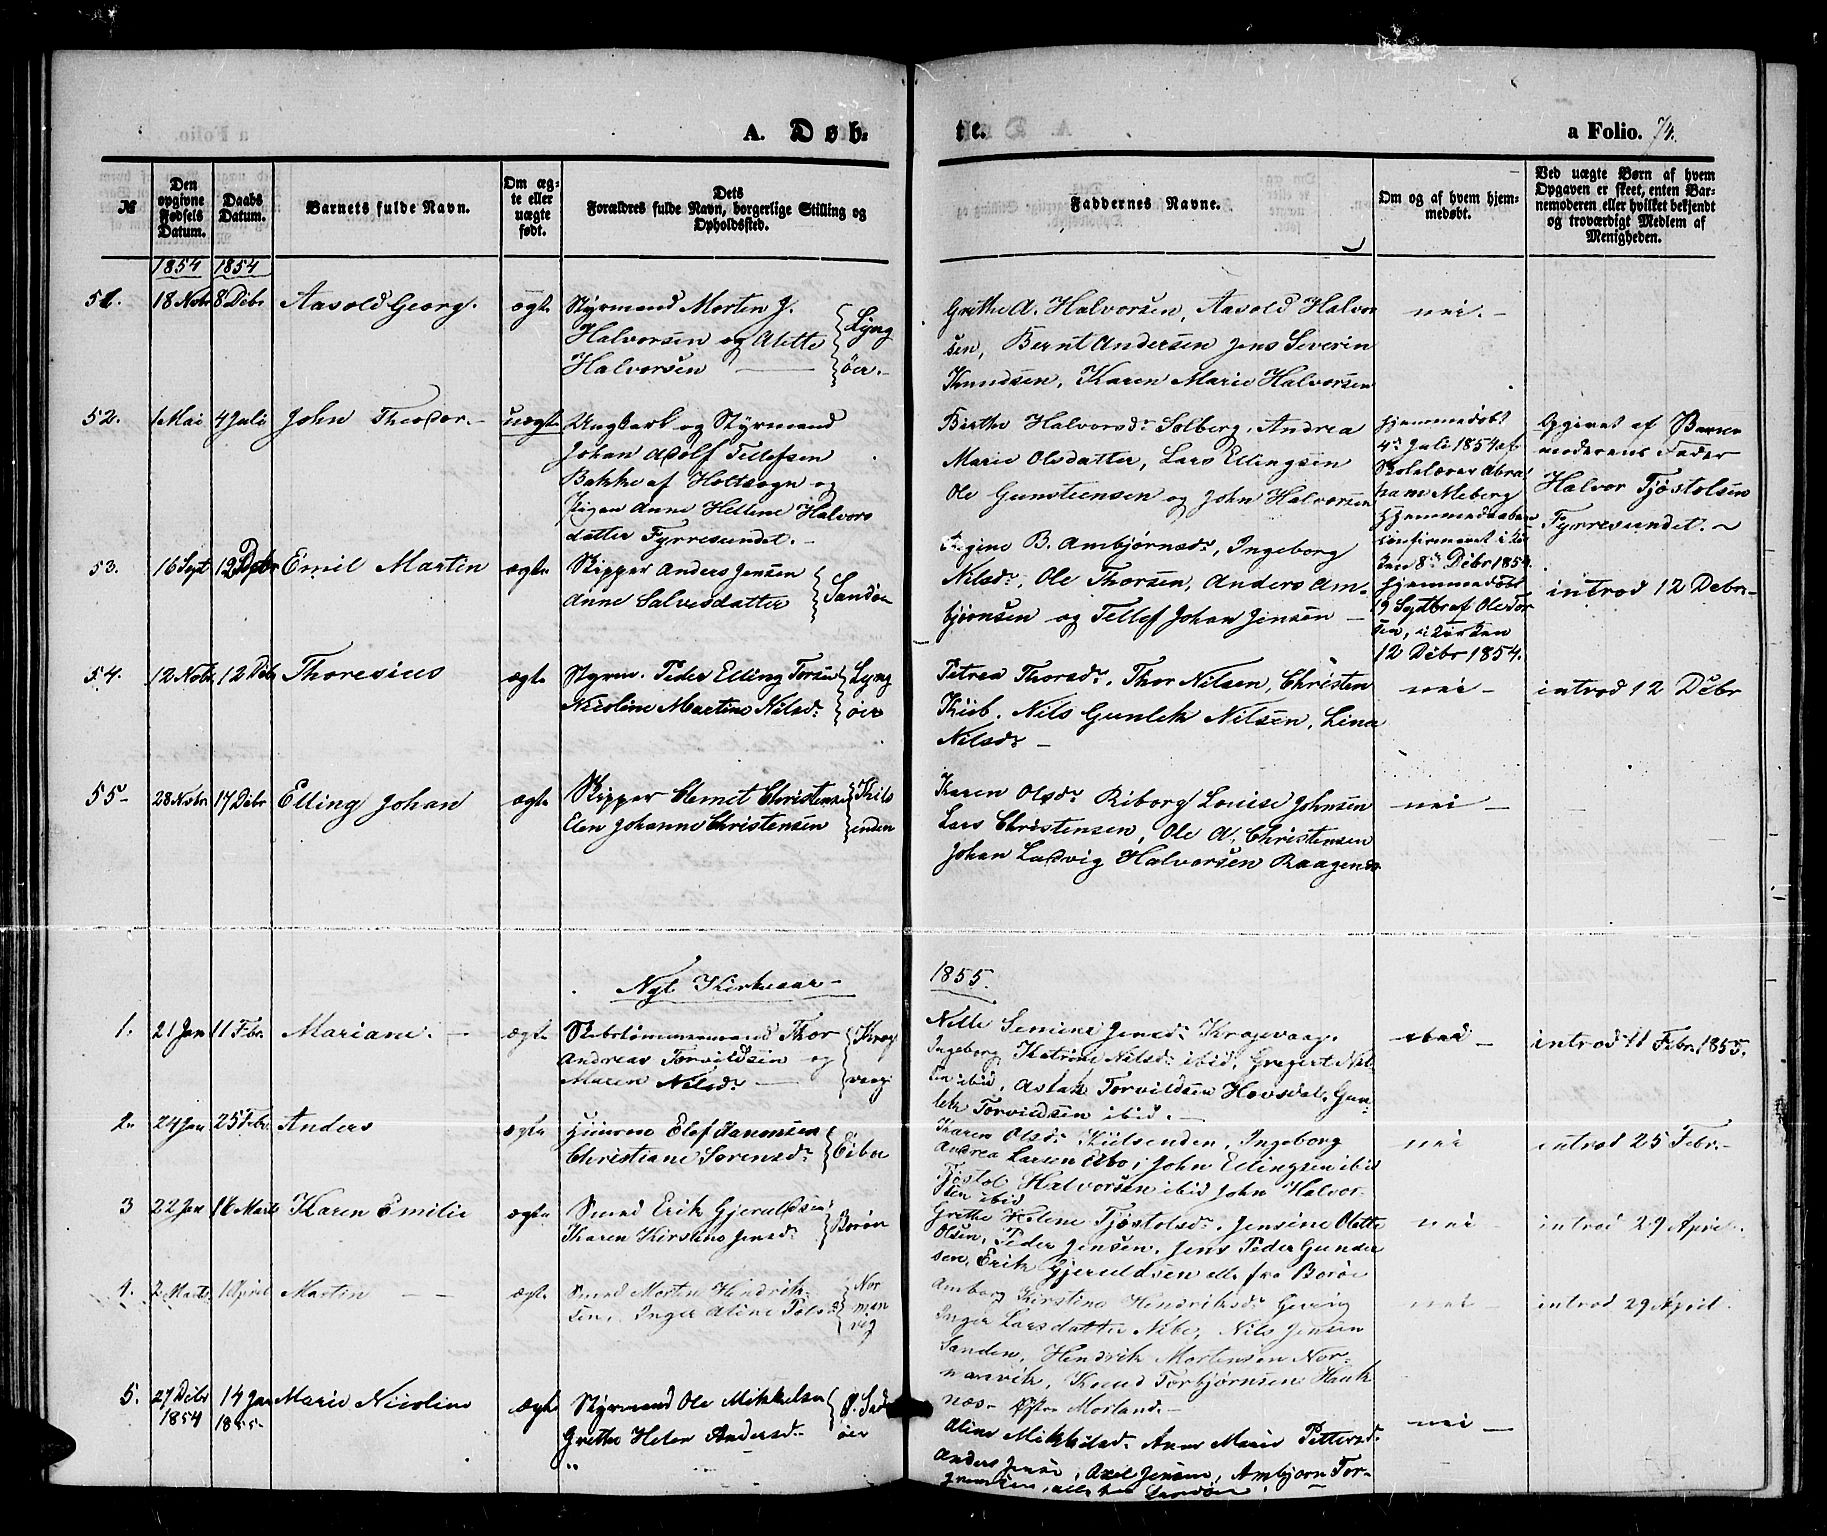 A. Døb=
te.
a Folio. 74.
№
Den opgivne Fødsels Datum.
Daabs Datum.
Barnets fulde Navn.
Om ægte eller uægte født.
Dets
Forældres fulde Navn, borgerlige Stilling og
Opholdssted.
Faddernes Navne.
Om og af hvem hjem-
medøbt.
Ved uægte Børn af hvem
Opgaven er skeet, enten Bar-
nemoderen eller hvilket bekjendt
og troværdigt Medlem af
Menigheden.
1854 1854
51. 18 Nobr 8 Debr Aasold Georg. ægte
Styrmand Morten J.
Halvorsen og Alette
Halvorsen
Lyng
öer.
Grethe A. Halvorsen, Aasold Halvor
sen, Bernt Andersen Jens Severin
Knudsen, Karen Marie Halvorsen
nei.
52. 1 Mai 4 Juli John Theodor. uægte
Ungkarl og Styrmand
Johan Adolf Tellefsen
Bakke af Holtsogn og
Pigen Anne Hellene Halvors
datter Fyrresundet.
Birthe Halvorsdr Solberg, Andrea
Marie Olsdatter, Lars Ellingsen
Ole Gunsteensen og John Halvorsen
Hjemmedøbt
4de Juli 1854 af
Skolelærer Abra
ham Meberg
Hjemmedaaben
confirmeret i Kir
ken 8de Debr 1854.
Opgivet af Barne
moderens Fader
Halvor Tjöstolsen
Fyrresundet.
53. 16 Sept 12 Debr Emil Martin ægte
Skipper Anders Jensen
Anne Salvesdatter
Sandøen
B. Ambjörnsdr, Ingeborg
Nilsdr, Ole Thorsen, Anders Am-
bjørnsen og Tellef Johan Jensen
Hjemmedøbt
19 Septbr af Ole Tor
sen, i Kirken
12 Debr 1854.
introd 12 Debr
54. 12 Nobr 12 Debr Thoresius ægte
Styrm. Peder Elling Torsen
Nicoline Martine Nilsdr
Lyng
öer
Petrea Thorsdr, Thor Nilsen, Christen
Kiib, Nils Gunlek Nilsen, Lina
Nilsdr
nei
introd 12 Debr
55 28 Nobr 17 Debr Elling Johan ægte
Skipper Clemet Christensen
Elen Johanne Christensen
Kils
enden
Karen Olsdr Riborg Louise Johnsen
Lars Christensen, Ole A. Christensen
Johan Ludvig Halvorsen Raagenes
nei
Nyt Kirkeaar
1855.
1. 21 Jan 11 Febr Mariane. ægte
Skibstömmermand Thor
Andreas Torvildsen og
Maren Nilsdr
Krog
vaag
Nelle Jensdr Krogevaag,
Ingeborg Katrine Nilsdr ibid, Gregert Nil-
sen ibid, Aslak Torvildsen Hovsdal, Gun-
lek Torvildsen ibid.
nei
introd 11 Febr. 1855.
2. 24 Jan 25 Febr Anders ægte
Elef
Christiane Sorensdr
Karen Olsdr Kielsenden, Ingeborg
Andrea Larsen Eibo, John Ellingsen ibid
Tjöstol Halvorsen ibid John Halvor-
sen ibid
nei
introd 25 Febr.
3 22 Jan 18 Marts Karen Emilie ægte
Smed Erik Gjeruldsen
Karen Kirstine Jensdr
Borøen
Grethe Helene Tjöstolsdr, Jensine Olette
Olsen, Peder Jensen, Jens Peder Gunder
sen, Erik Gjeruldsen alle fra Borøe
nei
introd 29 April.
4. 2 Marts 1 April Martin ægte
Smed Morten Hendrik-
sen, Inger Aline Pols
Nor
man
vig
Amborg Kirstine Hendriksdr
Inger Larsdatter Nibe, Nils Jensen
Sanden, Hendrik Mortensen Nor-
manvik, Knud Torbjörnsen Hauk
næs. Morland.
nei
introd 29 April.
5. 27 Debr 1854 14 Jan 1855. Marie Nicoline ægte
Styrmand Ole Mikkelsen
Grethe Helen Andersdr
Ø. Sand
öer
Aline Mikkelsdr Anne Marie Pettersdr
Anders Jensen, Axel Jensen, Ambjorn Tor-
alle fra Sandøen.
nei